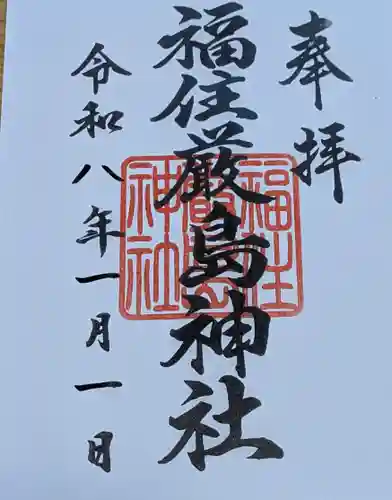 奉拝
福住厳島神社
福住
厳島
神社
令和八年一月一日